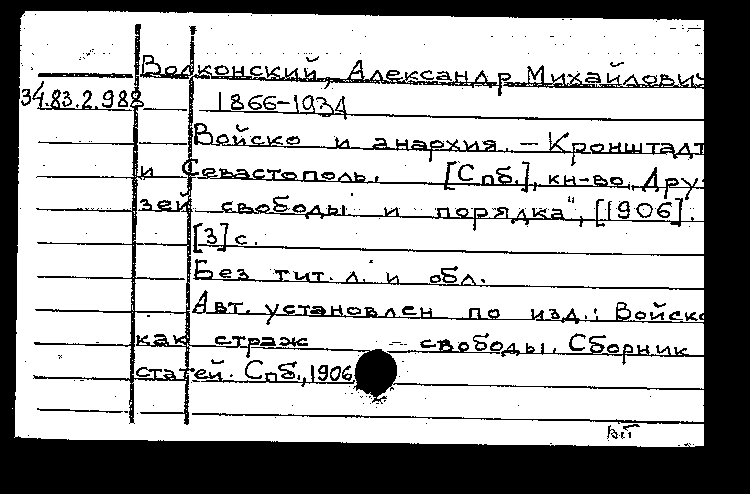 Волконский, Александр Михайлович
34.83.2.988 1866-1934
Войско и анархия. - Кронштадт
и Севастополь. [Спб.], кн-во „Дру-
зей свободы и порядка", [1906].
[3] с.
Без тит. л. и обл.
Авт. установлен по изд.: Войско
как страж свободы. Сборник
статей. Спб., 1906